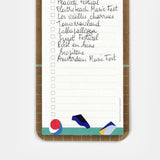 Pleasee Festival
Electrobeach Music Fest
Les vieilles charrues
Tomorrowland
Lollapalooza
Sziget Festival
Rock en Seine
Amsterdam Music Fest